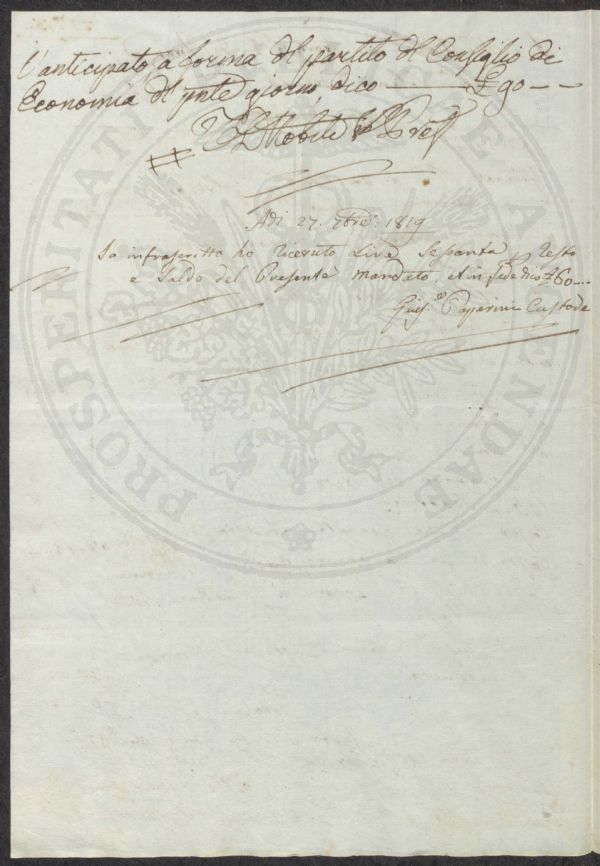 l'anticipato, a forma del partito del Consiglio di
Economia del pnte giorno, dico —— £ 90 - -
Nobili
Adi 27. Xbre. 1819
Io infrascritto ho Riceuto Lire Sessanta p Resto
e Saldo del Presente Mandato, et in fede dico £ 60 ...
Custode
PROSPERITATI PUBLICAE AUGENDAE